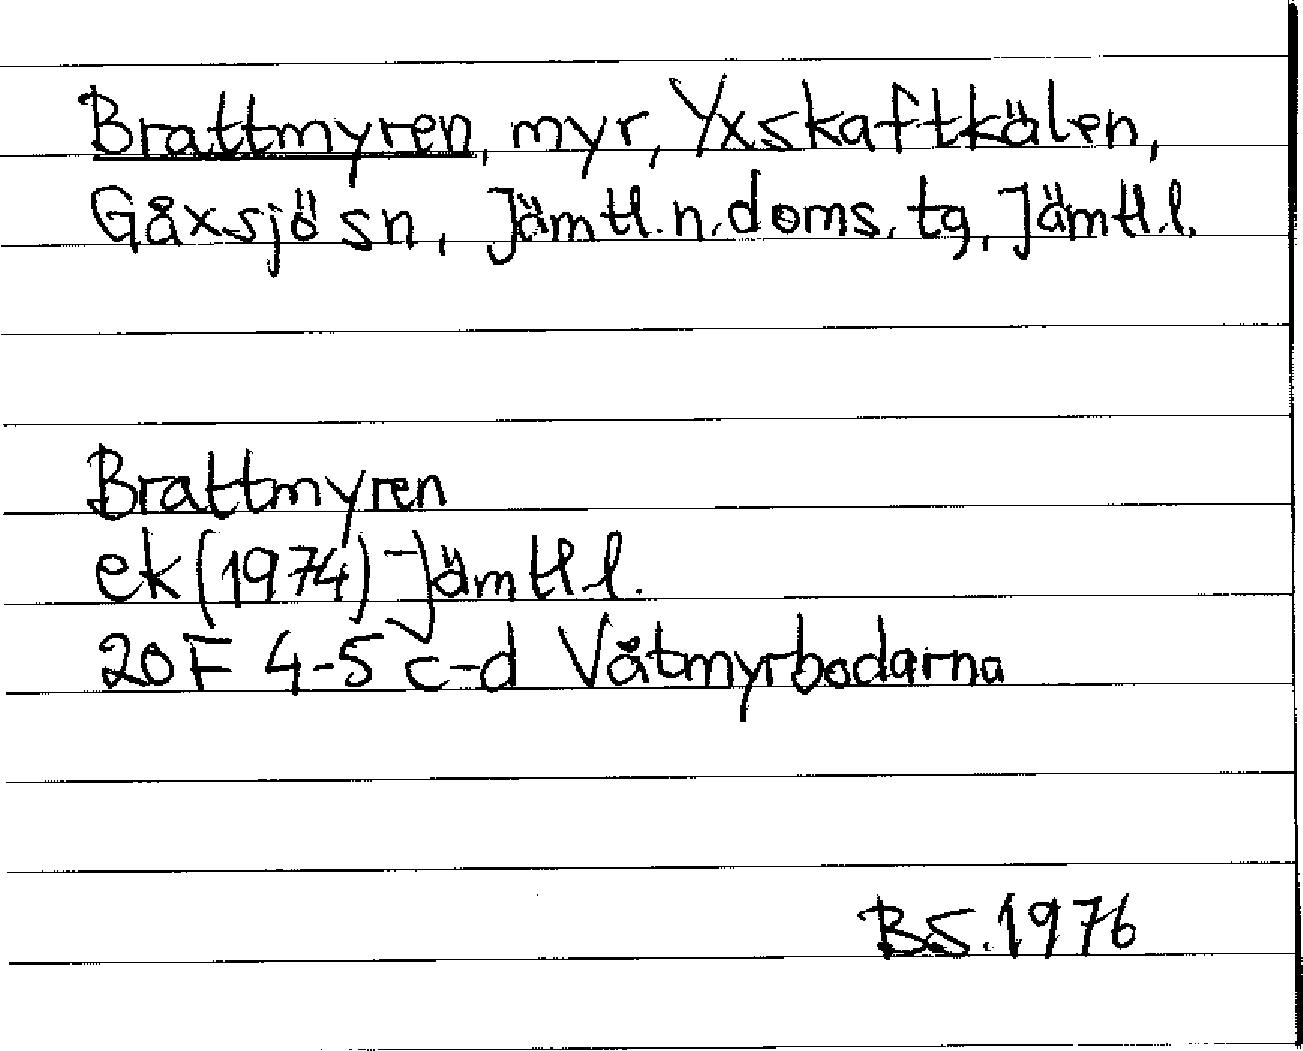 Brattmyren, myr, Yxskaftkälen,
Gåxsjö sn, Jämtl. n. doms. tg, Jämtl. l.
Brattmyren
ek (1974) Jämtl l.
20F 4-5 c-d Våtmyrbodarna
BS. 1976